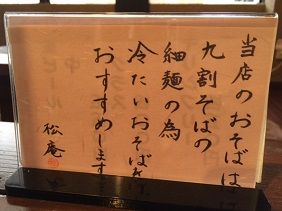 当店のおそばは
九割そばの
細麺の為
冷たいおそばを
おすすめします
松庵